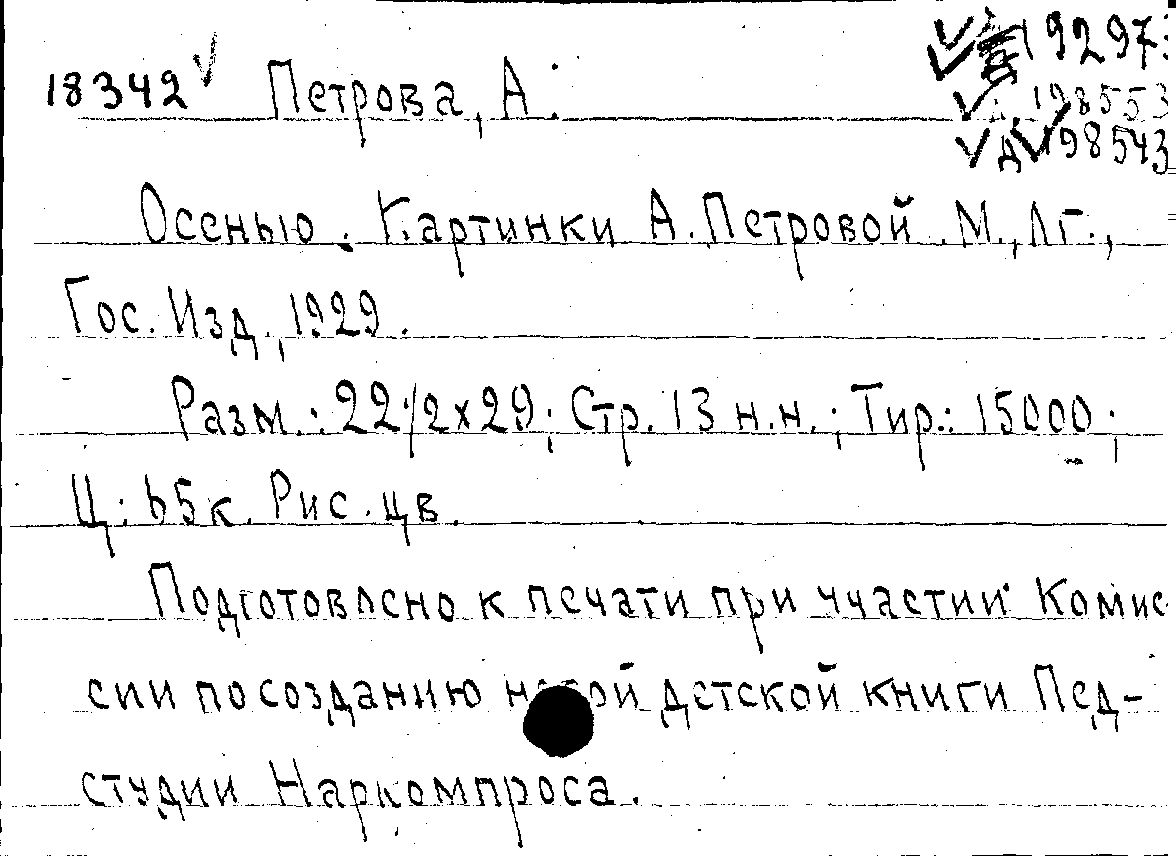 18342 Петрова, А.
19297
198553
Д 198543
Осенью. Картинки А. Петровой. М., Лг.,
Гос. Изд., 1929.
Разм.: 22 1/2 x 29; Стр. 13 н.н.; Тир.: 15000;
Ц.: 65 к. Рис. цв.
Подготовлено к печати при участии Комис
сии по созданию новой детской книги Пед-
студии Наркомпроса.